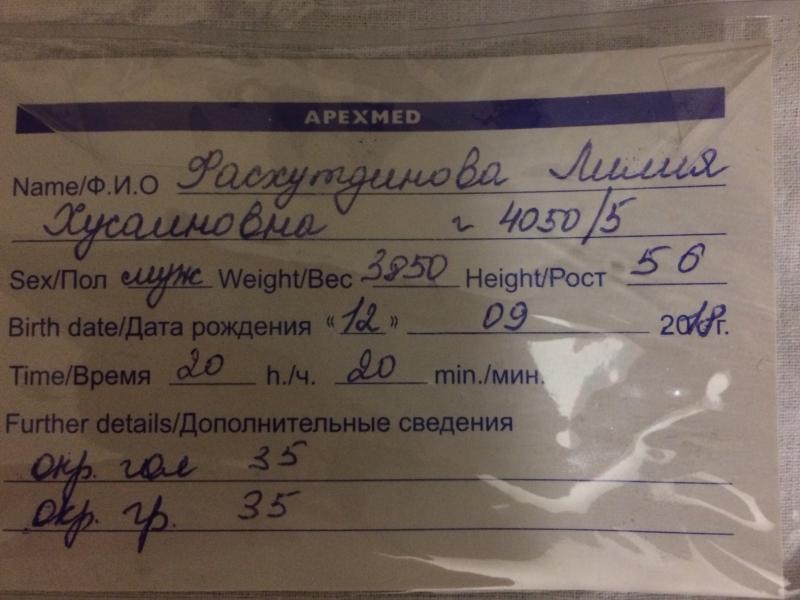 APEXMED
Name/Ф.И.О Фасхутдинова Лилия
Хусаиновна г 4050/5
Sex/Пол муж Weight/Вес 3850 Height/Рост 56
Birth date/Дата рождения «12» 09 2018г.
Time/Время 20 h./ч. 20 min./мин.
Further details/Дополнительные сведения
окр. гол 35
окр. гр. 35